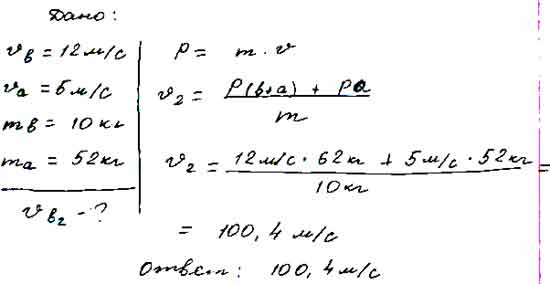 Дано:
v_в = 12 м/с
v_a = 5 м/с
m_в = 10 кг
m_a = 52 кг
v_в₂ - ?
P = m · v
v₂ = (P(в+a) + Pa) / m
v₂ = (12 м/с · 62 кг + 5 м/с · 52 кг) / 10 кг =
= 100,4 м/с
Ответ: 100,4 м/с